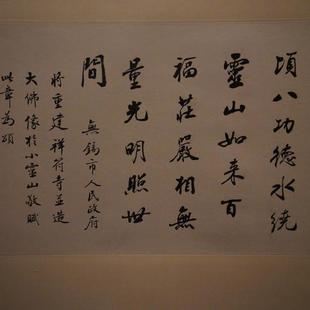 頃八功德水繞
靈山如来百
福莊嚴相無
量光明照世
間
無錫市人民政府
將重建祥符寺並造
大佛像於小靈山敬賦
此章爲頌